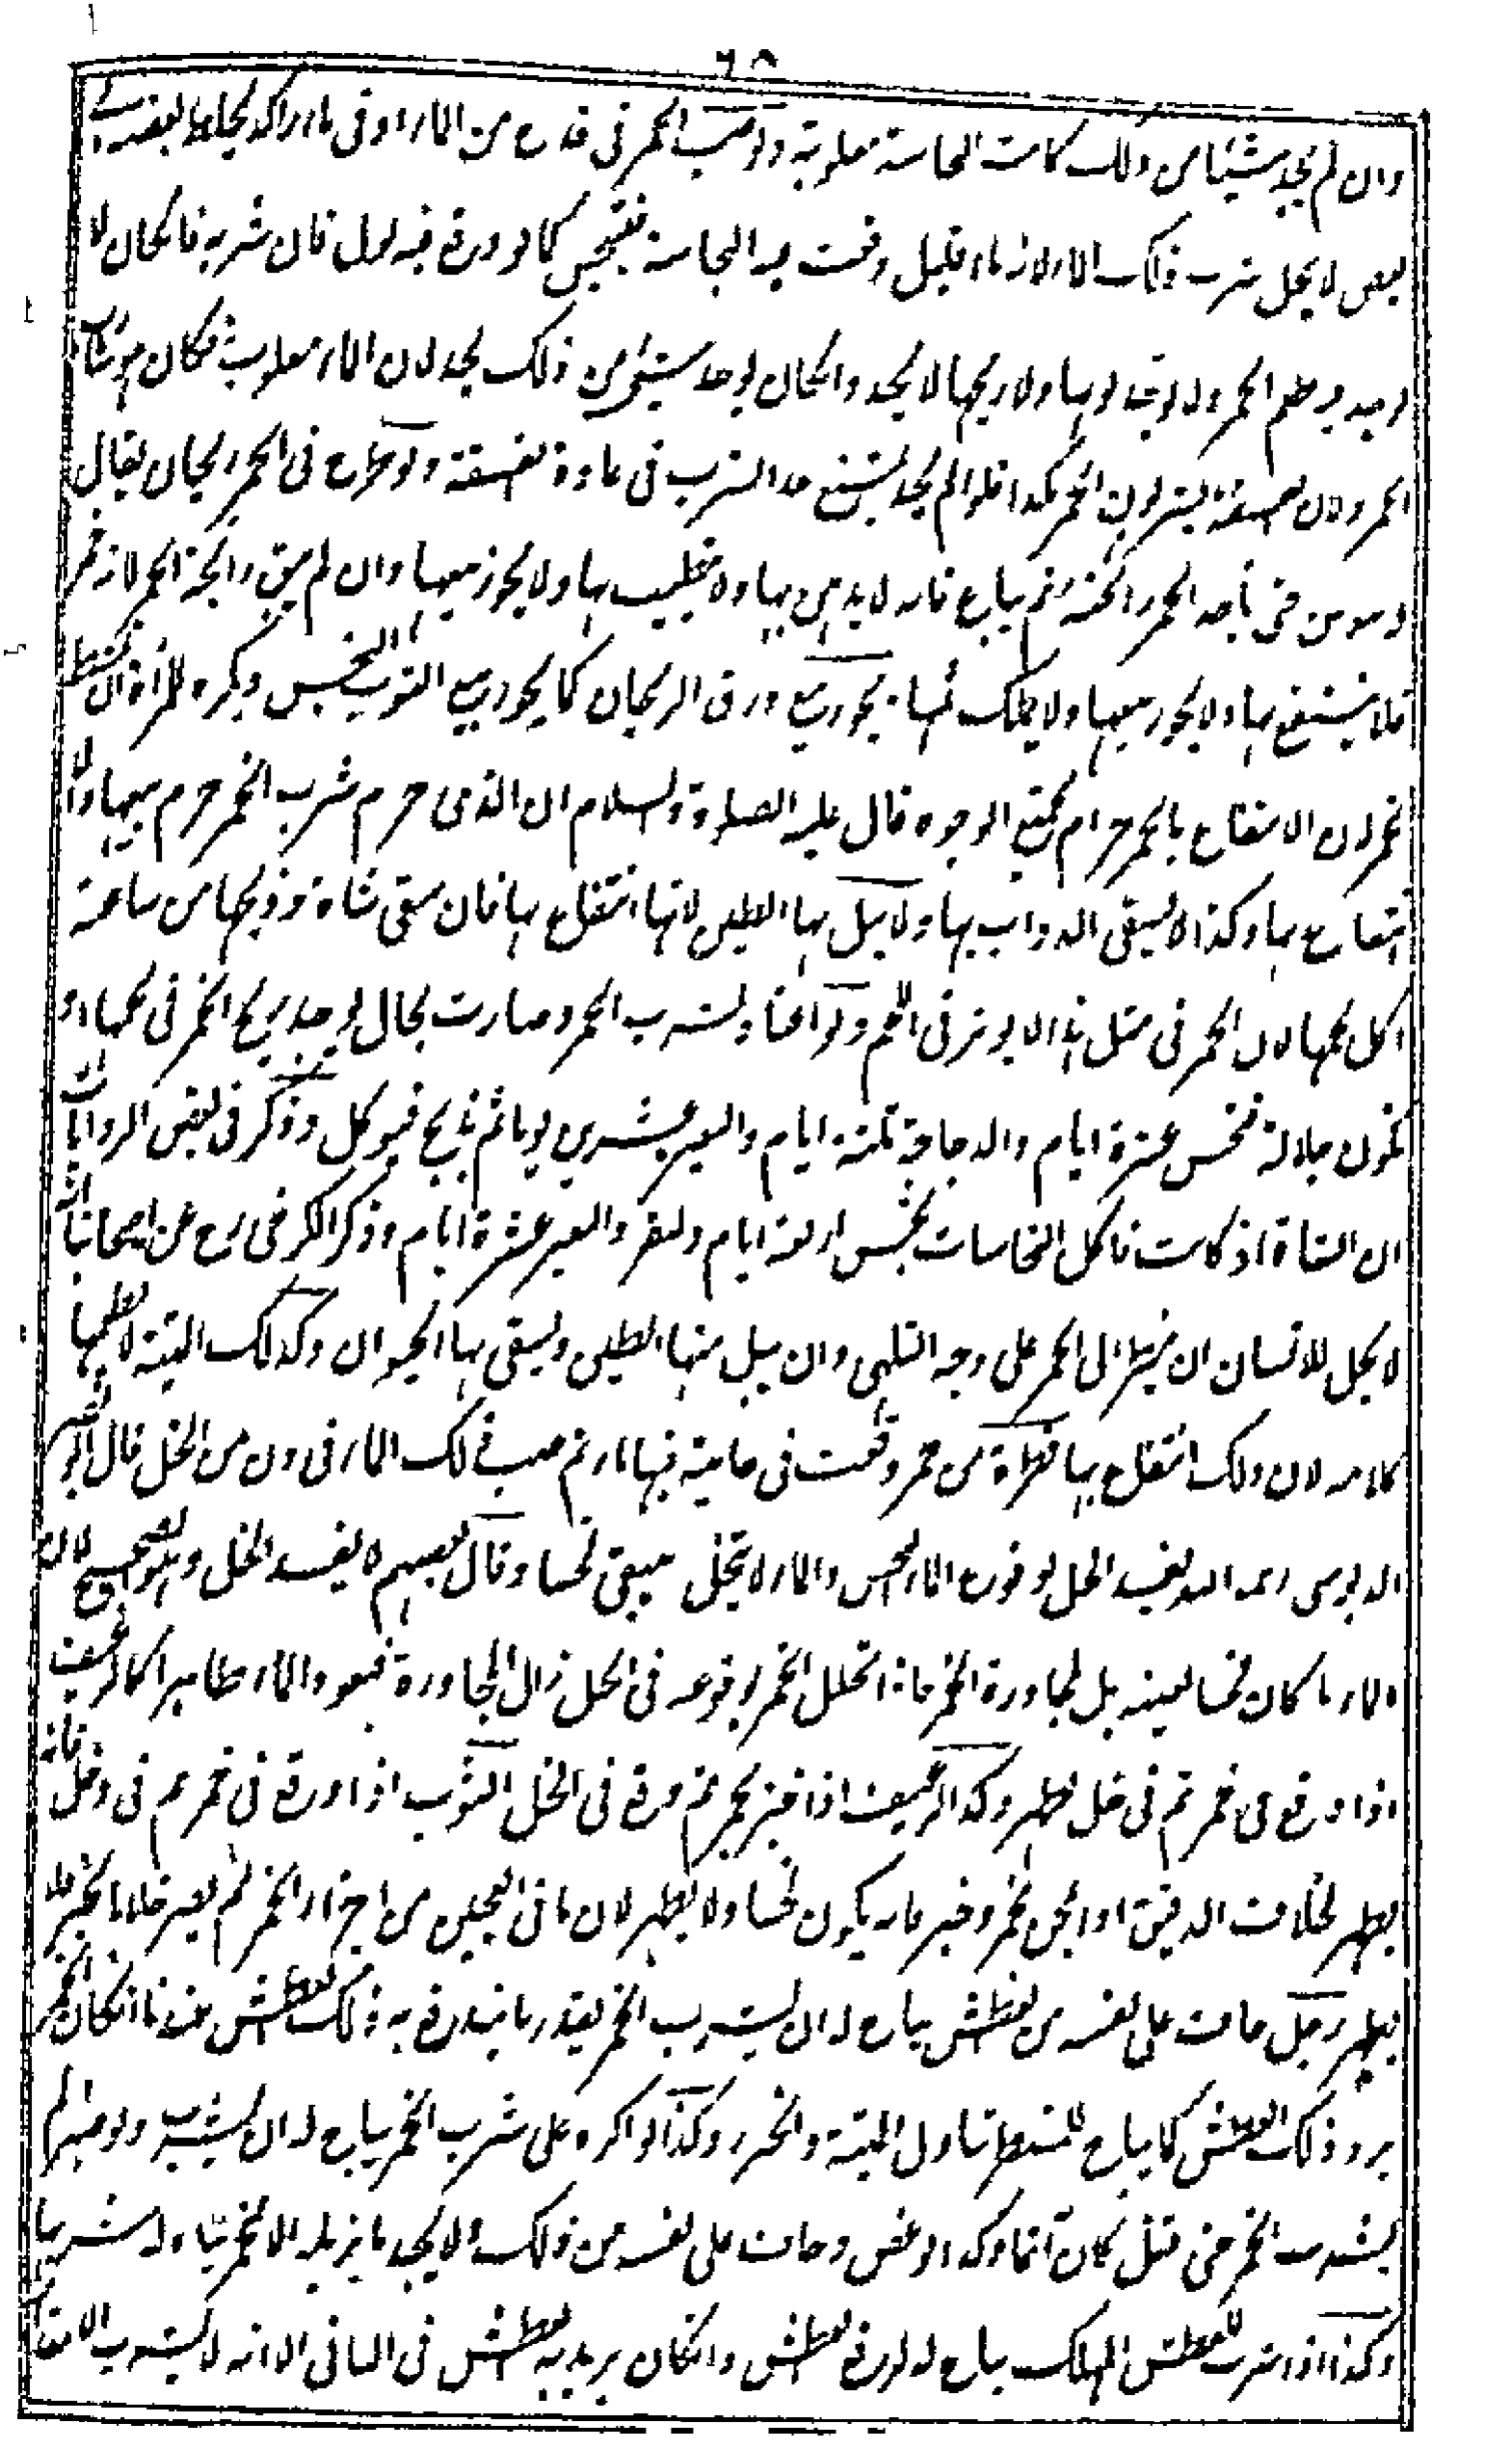 وان لم يجد شيئا من ذلك كانت النجاسة مغلوبة ولو صب الخمر فى قدح من الماء او فى ماء راكد يخلط بعضه
بعض لا يحل شرب ذلك الماء لانه ماء قليل وقعت فيه النجاسة فيتنجس كما لو وقع فيه بول فان شربه فان كان لا
يوجد فيه طعم الخمر ولا لونها ولا ريحها لا يحد وان كان يوجد شيئ من ذلك يحد لان الماء مغلوب فكان
الخمر ولان الفسقة يشربون الخمر هكذا فلو لم يحد يشيع هذا الشرب فى عادة الفسقة ولو طرح فى الخمر ريحان يقال
له سوسن حتى يأخذ الخمر رائحته ثم يباع فانه لا يدهن بها ولا يتطيب بها ولا يجوز بيعها وان لم يبق رائحة الخمر لانه خمر
فلا ينتفع بها ولا يجوز بيعها ولا يملك ثمنها يجوز بيع ورق الريحان كما يجوز بيع الثوب النجس ويكره للمرأة ان تمتشط
بخمر لان الانتفاع بالخمر حرام بجميع الوجوه قال عليه الصلوة والسلام ان الذى حرم شرب الخمر حرم بيعها والا
نتفاع بها وكذا لا يسقى الدواب بها ولا يبل بها الطين لانها انتفاع بها فان سقى شاة وذبحها من ساعته
اكل لحمها لان الخمر فى مثل هذا لا يؤثر فى اللحم ولو اعتاد شرب الخمر وصارت بحال يوجد ريح الخمر فى لحمها او
تكون جلالة تحبس عشرة ايام والدجاجة ثلثة ايام والبعير عشرين يوما ثم يذبح فيوكل وذكر فى بعض الروايات
ان الشاة اذ كانت تاكل النجاسات تحبس اربعة ايام والبقر والبعير عشرة ايام وذكر الكرخى رح عن اصحابنا انه
لا يحل للانسان ان ينظر الى الخمر على وجه التلهى وان يبل منها الطين ويسقى بها الحيوان وكذلك الميتة لا يطعمها
كلابه لان ذلك انتفاع بها قطرة من خمر وقعت فى خابية فيها ماء ثم صب ذلك الماء فى دن من الخل قال ابو نصر
الدبوسى رحمه الله يفسد الخل لوقوع الماء النجس والماء لا يتخلل فيبقى نجسا وقال بعضهم لا يفسد الخل وهو الصحيح لان
الماء ما كان نجسا لعينه بل لمجاورة الخمر فاذا تخلل الخمر لوقوعه فى الخل زال المجاورة فيعود الماء طاهرا كالرغيف
اذا وقع فى خمر ثم فى خل يطهر وكذا الرغيف اذا خبز بخمر ثم وقع فى الخل الثوب اذا وقع فى خمر ثم فى خل فانه
يطهر بخلاف الدقيق اذا عجن بخمر وخبز فانه يكون نجسا ولا يطهر لان ما فى العجين من اجزاء الخمر لم يصر خلا بالخبز فلا
يطهر رجل خاف على نفسه من العطش يباح له ان يشرب الخمر بقدر ما يندفع به ذلك العطش عندنا ان كان الخمر
يرد ذلك العطش كما يباح للمضطر تناول الميتة والخنزير وكذا لو اكره على شرب الخمر يباح له ان يشرب ولو صبر لم
يشرب الخمر حتى قتل كان آثما وكذا لو غص وخاف على نفسه من ذلك ولا يجد ما يزيله الا الخمر يباح له شربها
وكذا اذا شرب للعطش المهلك يباح له لدفع العطش وان كان يزيد به العطش فى الثانى الا انه لا يشرب الا